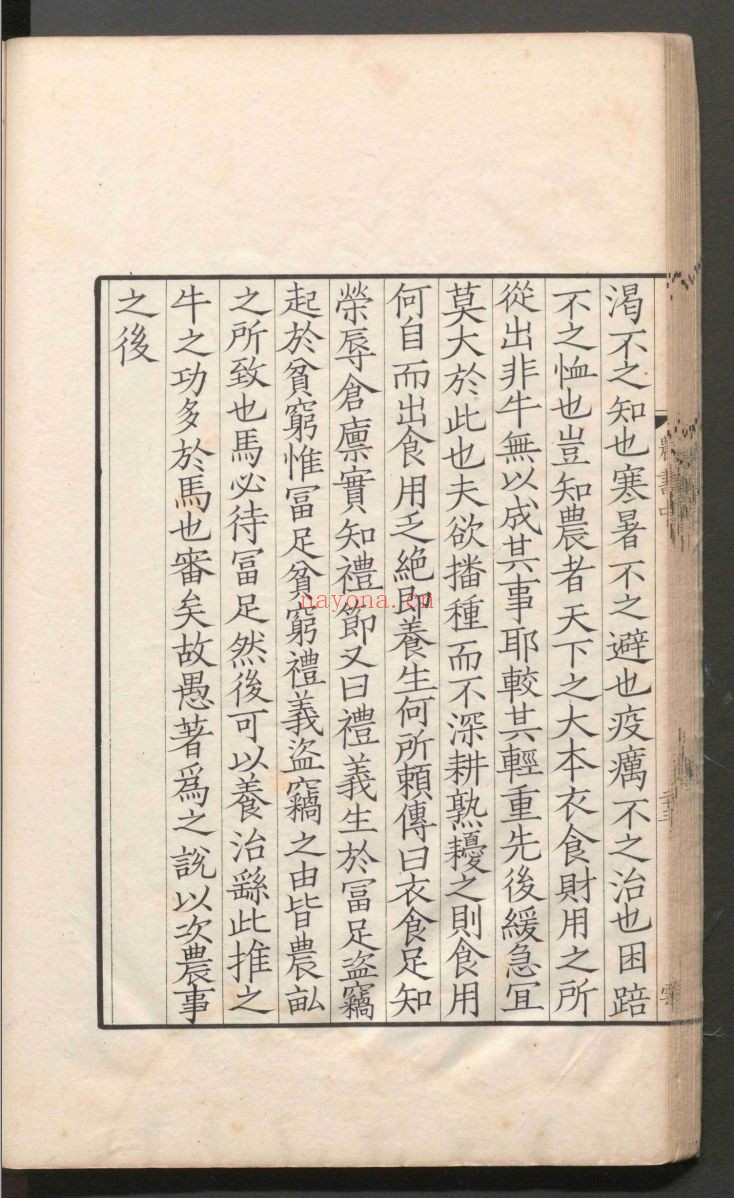 渴不之知也寒暑不之避也疫癘不之治也困踣
不之恤也豈知農者天下之大本衣食財用之所
從出非牛無以成其事耶較其輕重先後緩急冝
莫大於此也夫欲播種而不深耕熟耰之則食用
何自而出食用乏絶即養生何所賴傳曰衣食足知
榮辱倉廪實知禮節又曰禮義生於冨足盗竊
起於貧窮惟冨足貧窮禮義盜竊之由皆農畆
之所致也馬必待冨足然後可以養治繇此推之
牛之功多於馬也審矣故愚著爲之說以次農事
之後
農書中
nayona.cn